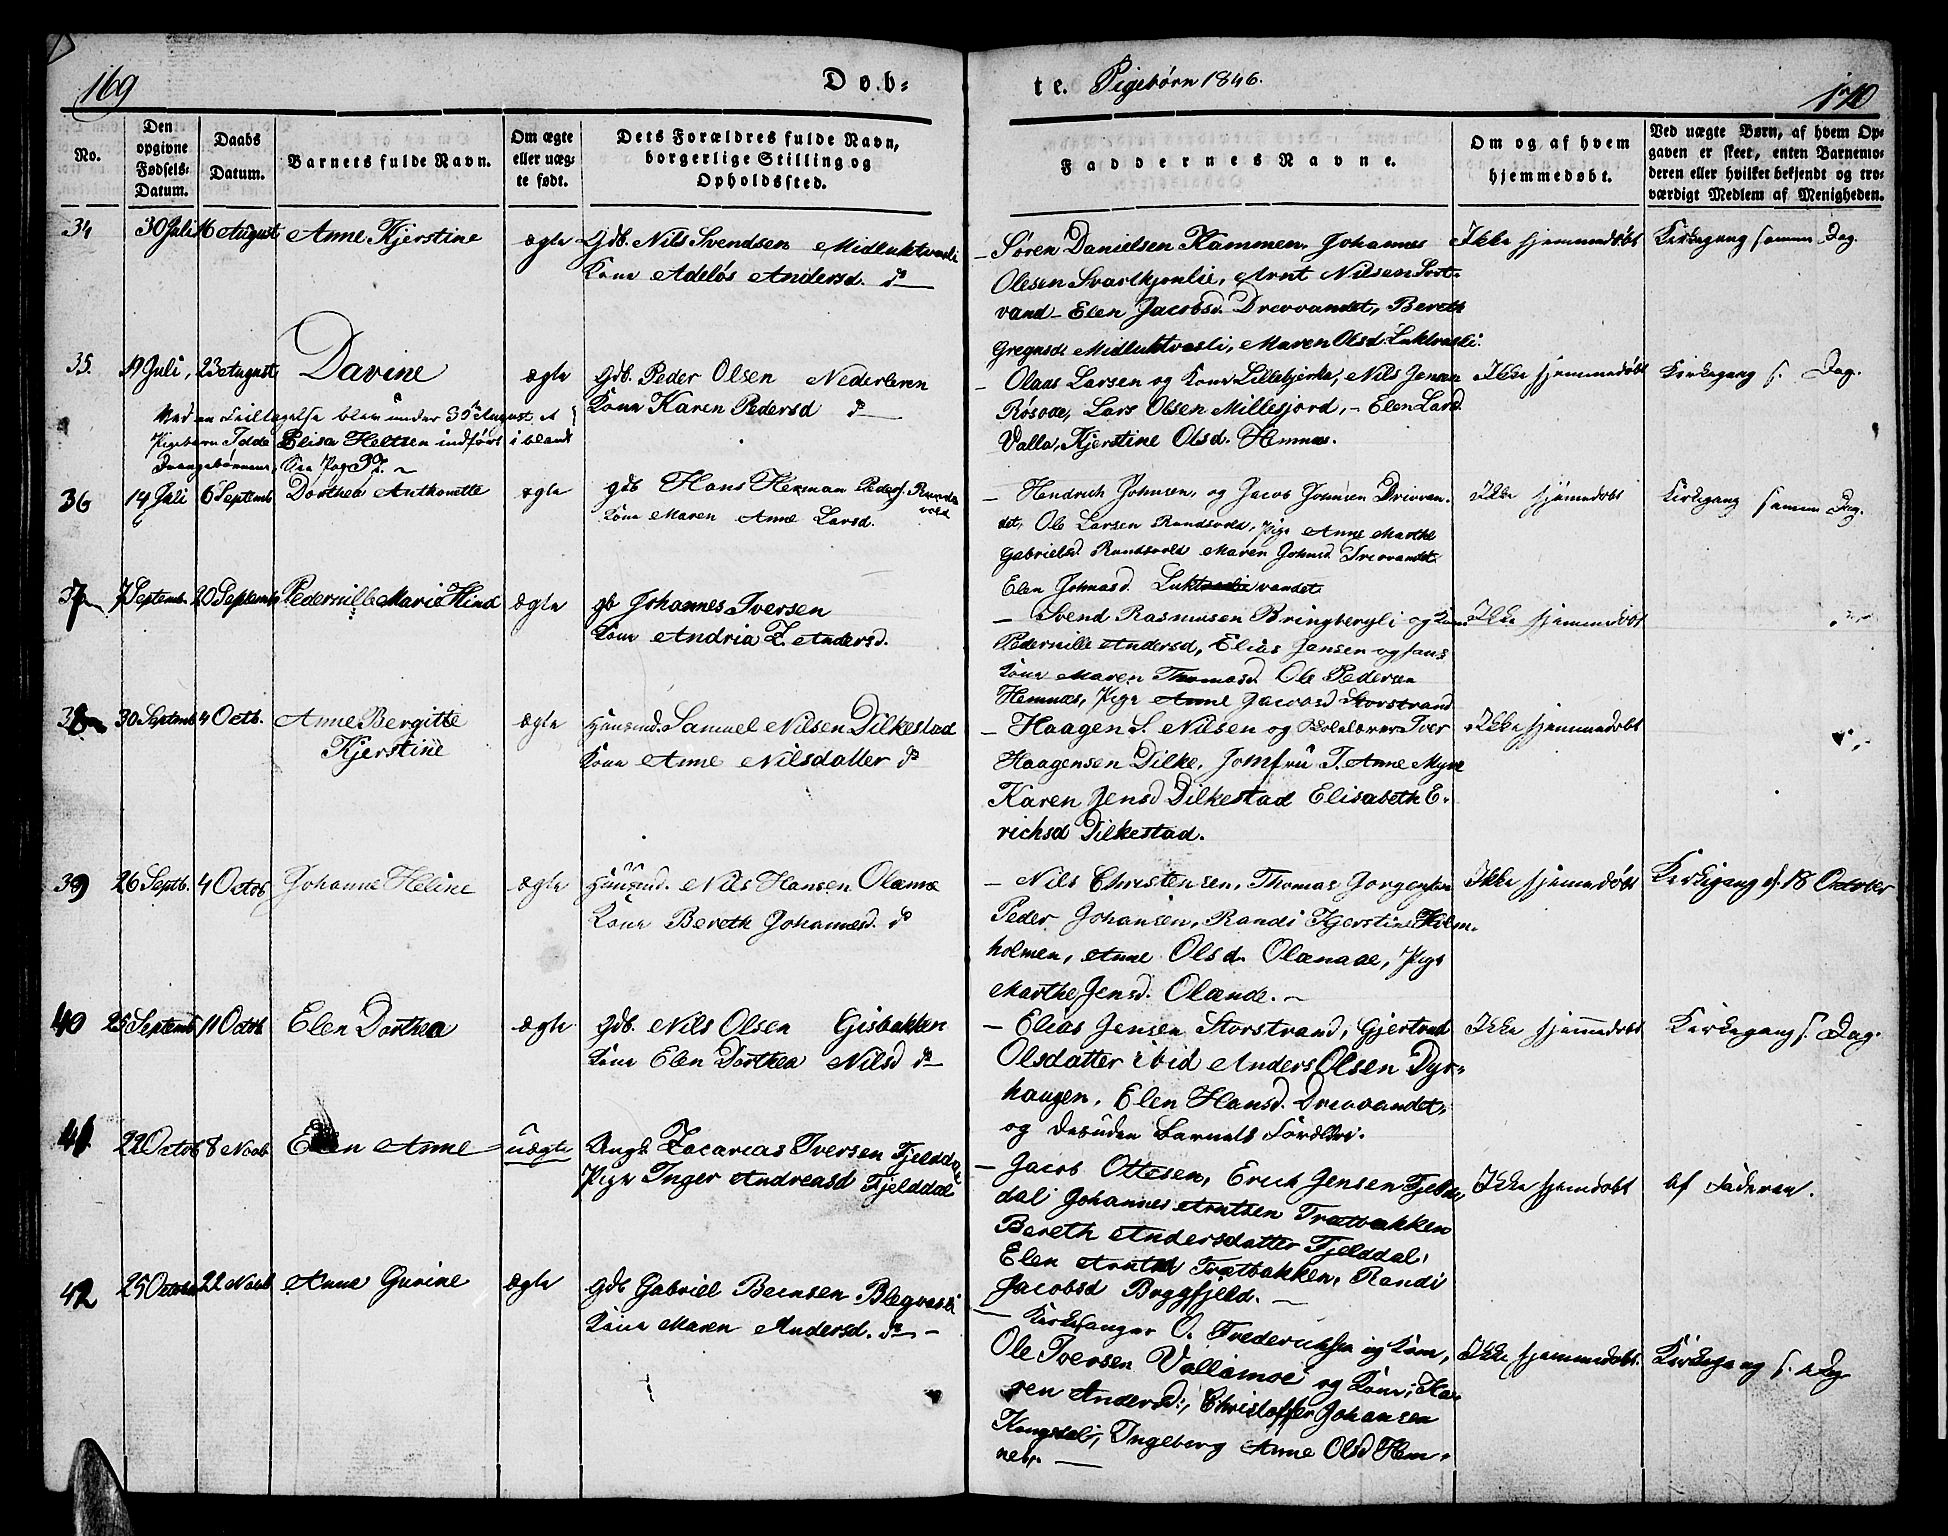 169
Døb-
te. Pigebørn 1846.
170
No.
Den opgivne Fødsels-Datum.
Daabs Datum.
Barnets fulde Navn.
Om ægte eller uæg-te født.
Dets Forældres fulde Navn, borgerlige Stilling og Opholdssted.
Faddernes Navne.
Om og af hvem hjemmedøbt.
Ved uægte Børn, af hvem Op-gaven er skeet, enten Barnemo-deren eller hvilket bekjendt og tro-værdigt Medlem af Menigheden.
34 30 Juli 16 August Anne Kjerstine ægte Gdb. Nils Svendsen Midluktvasli
Kone Adelös Andersd. do
– Søren Danielsen Kammen, Johannes
Olesen Svartkjønlie, Arnt Nilsen Sort-
vand – Elen Jacobsd. Drevvandet, Bereth
Gregusd. Midluktvasli, Maren Olsd Luktvasli.
Ikke hjemmedøbt Kirkegang samme Dag.
35. 19 Juli, 23 August Davine ægte Gdb. Peder Olsen Nederleren
Kone Karen Pedersd do
– Olaas Larsen og Kone Lillebjerka, Nils Jensen
Røsoae, Lars Olsen Millesjord, – Elen Larsd.
Valla, Kjerstine Olsd. Hemnæs.
Ikke hjemmedøbt Kirkegang s. Dag.
Ved en Feiltagelse blev under August et
Pigebarn Elisa Heltzen indført iblandt
Drengebørnene, See Pag 37. –
36 14 Juli 6 Septemb Dorthea Anthonette ægte gdb Hans Herman Peders. Randsvold
Kone Maren Anne Larsd.
– Hendrich Johnsen, og Jacob Johnsen Drevvan-
det, Ole Larsen Randsvold, Pige Anne Marthe
Gabrielsd Randsvold Maren Johnsd Drevvandet
Elen Johnasd. Luktvandet
Ikke hjemmedøbt Kirkegang samme Dag.
37 7 Septemb. 20 Septemb Pedernille Marie Hind ægte gb Johannes Iversen
Kone Andria Z. Andersd.
– Svend Rasmusen Bringbergli og Kone
Pedernille Andersd, Elias Jansen og hans
Kone Maren Thomasd. Ole Pedersen
Hemnæs, Pige Anne Jacobsd Storstrand
Ikke hjemmedøbt
38 30 Septemb 4 Octb. Anne Bergitte
Kjerstine
ægte Huusmd. Samuel Nilsen Dilkestad
Kone Anne Nilsdatter do
– Haagen S. Nilsen og Skolelærer Iver
Haagensen Dilke, Jomfru T. Anne Myre
Karen Jensd Dilkestad Elisabeth E-
richsd Dilkestad.
Ikke hjemmedøbt
39 26 Septb. 4 Octob Johanne Heline ægte Huusmd. Nils Hansen
Kone Bereth Johannesd. do
– Nils Christensen, Thomas Jorgensen
Peder Johansen, Randi Kjerstine Holm-
holmen, Anne Olsd. Pige
Marthe Jensd. –
Ikke hjemmedøbt Kirkegang d. 18 October
40 25 Septemb 11 Octob Elen Dorthea ægte Gdb. Nils Olsen Gisbakken
Kone Elen Dorthea Nilsd do
– Elias Jensen Storstrand, Gjertrud
Olsdatter ibid Anders Olsen Dyr-
haugen, Elen Hansd. Drevvandet,
og desuden Barnets Forældre.
Ikke hjemmedøbt Kirkegang s. Dag.
41 22 Octob 8 Novb. Elen Anne uægte Ungk. Zacarias Iversen Fjelddal
Pige Inger Andreasd Fjelddal
– Jacob Ottesen, Erich Jensen Fjeld-
dal Johannes Arntsen Trætbakken
Bereth Andersdatter Fjelddal,
Elen Arntsd Trætbakken, Randi
Jacobsd Bryggfjeld. –
Ikke hjemdøbt af Faderen.
42 25 October 22 Novb Anne Gurine ægte Gdb Gabriel Berntsen
Kone Maren Andersd. do –
– Kirkesanger O. Frederichsen og Kone,
Ole Iversen Vallamoe og Kone, Ka-
ren Andersd., Christoffer Johansen
Kongsdal, Ingeborg Anne Olsd Hem-
nes. –
Ikke hjemmedøbt. Kirkegang s. Dag